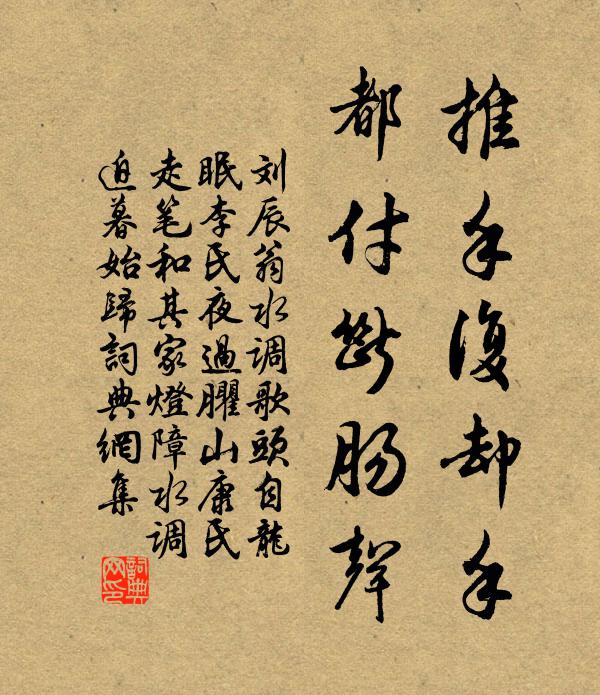 推手復却手
都付斷腸聲
刘辰翁水调歌頭自龍
眠李民夜過臞山康民
走笔和其家燈障水调
迫暮始歸詞典網集
詞典网印